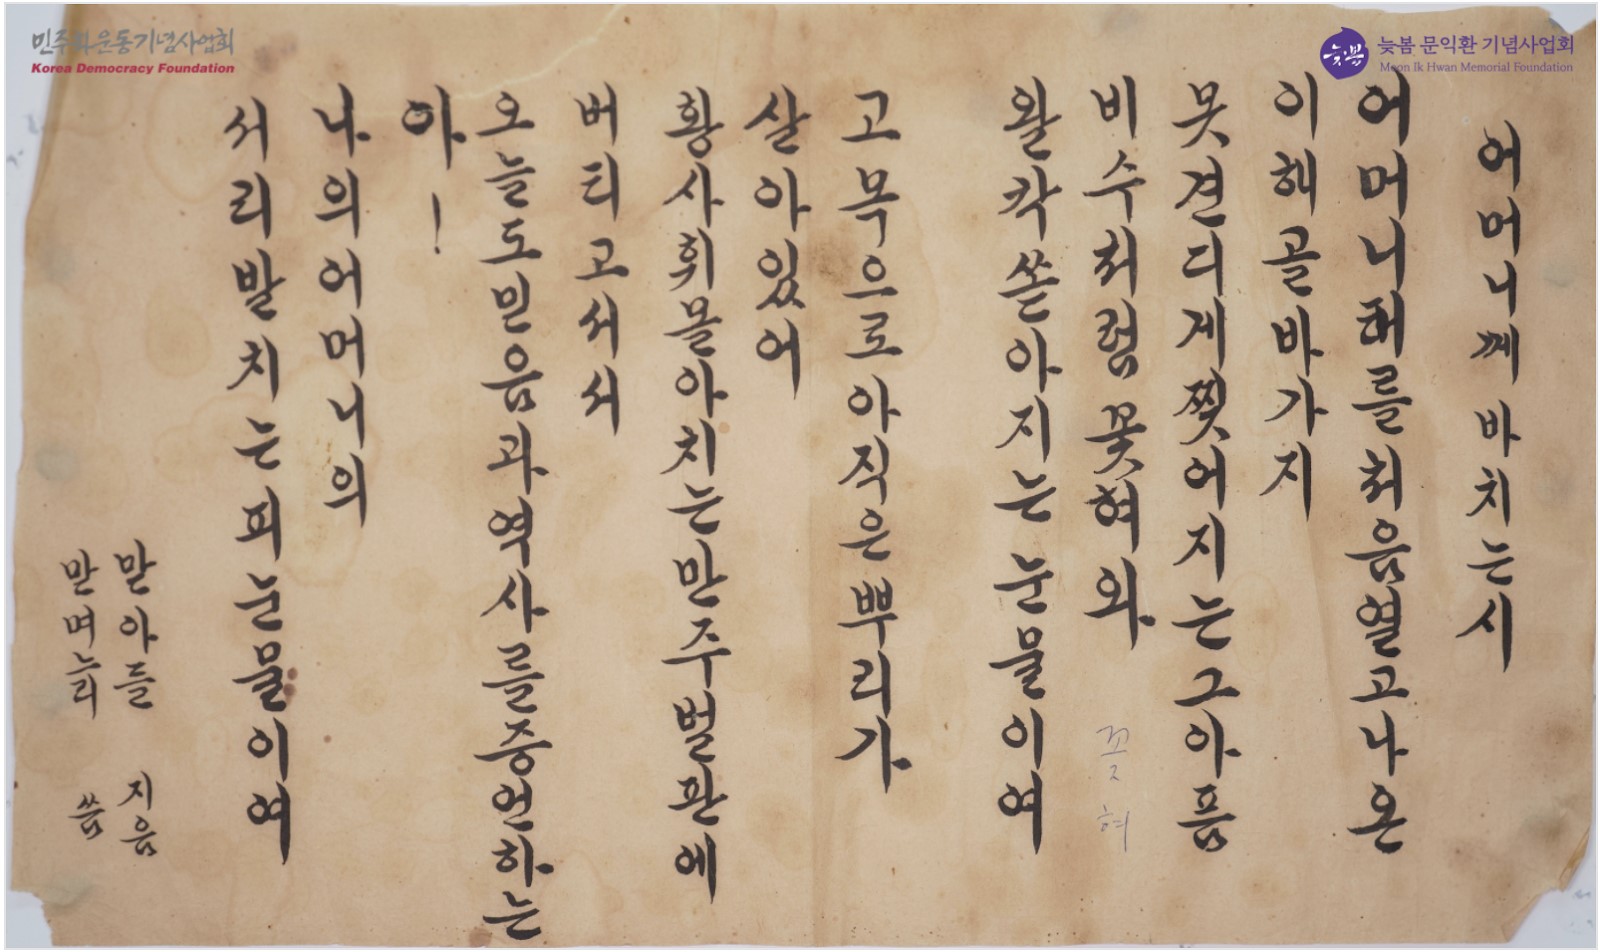 민주화운동기념사업회
Korea Democracy Foundation
늦봄
늦봄 문익환 기념사업회
Moon Ik Hwan Memorial Foundation
어머니께 바치는 시
어머니 해를 처음 열고 나온
이 해골바가지
못 견디게 찢어지는 그 아픔
비수처럼 꽃혀 와
꽃 혀
왈칵 쏟아지는 눈물이여
고목으로 아직은 뿌리가
살아 있어
황사 휘몰아치는 만주 벌판에
버티고 서서
오늘도 믿음과 역사를 증언하는
아!
나의 어머니의
서리발 치는 피눈물이여
맏아들 지음
맏며늘리 씀